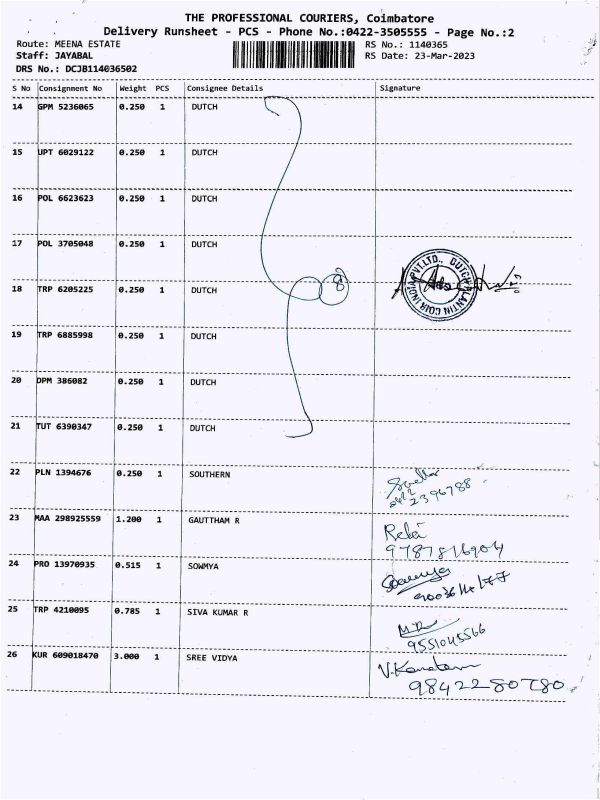 THE PROFESSIONAL COURIERS, Coimbatore
Delivery Runsheet - PCS - Phone No.:0422-3505555 - Page No.:2
Route: MEENA ESTATE RS No.: 1140365
Staff: JAYABAL RS Date: 23-Mar-2023
DRS No.: DCJB114036502
S No Consignment No Weight PCS Consignee Details Signature
14 GPM 5236065 0.250 1 DUTCH
15 UPT 6029122 0.250 1 DUTCH
16 POL 6623623 0.250 1 DUTCH
17 POL 3705048 0.250 1 DUTCH
8
DUTCH PLANTIN COIR INDIA PVT.LTD.,
18 TRP 6205225 0.250 1 DUTCH
19 TRP 6885998 0.250 1 DUTCH
20 DPM 386082 0.250 1 DUTCH
21 TUT 6390347 0.250 1 DUTCH
22 PLN 1394676 0.250 1 SOUTHERN
0422
2396788
23 MAA 298925559 1.200 1 GAUTTHAM R
9787816904
24 PRO 13970935 0.515 1 SOWMYA Sowmya
25 TRP 4210095 0.785 1 SIVA KUMAR R
9551045566
26 KUR 609018470 3.000 1 SREE VIDYA
9842280780